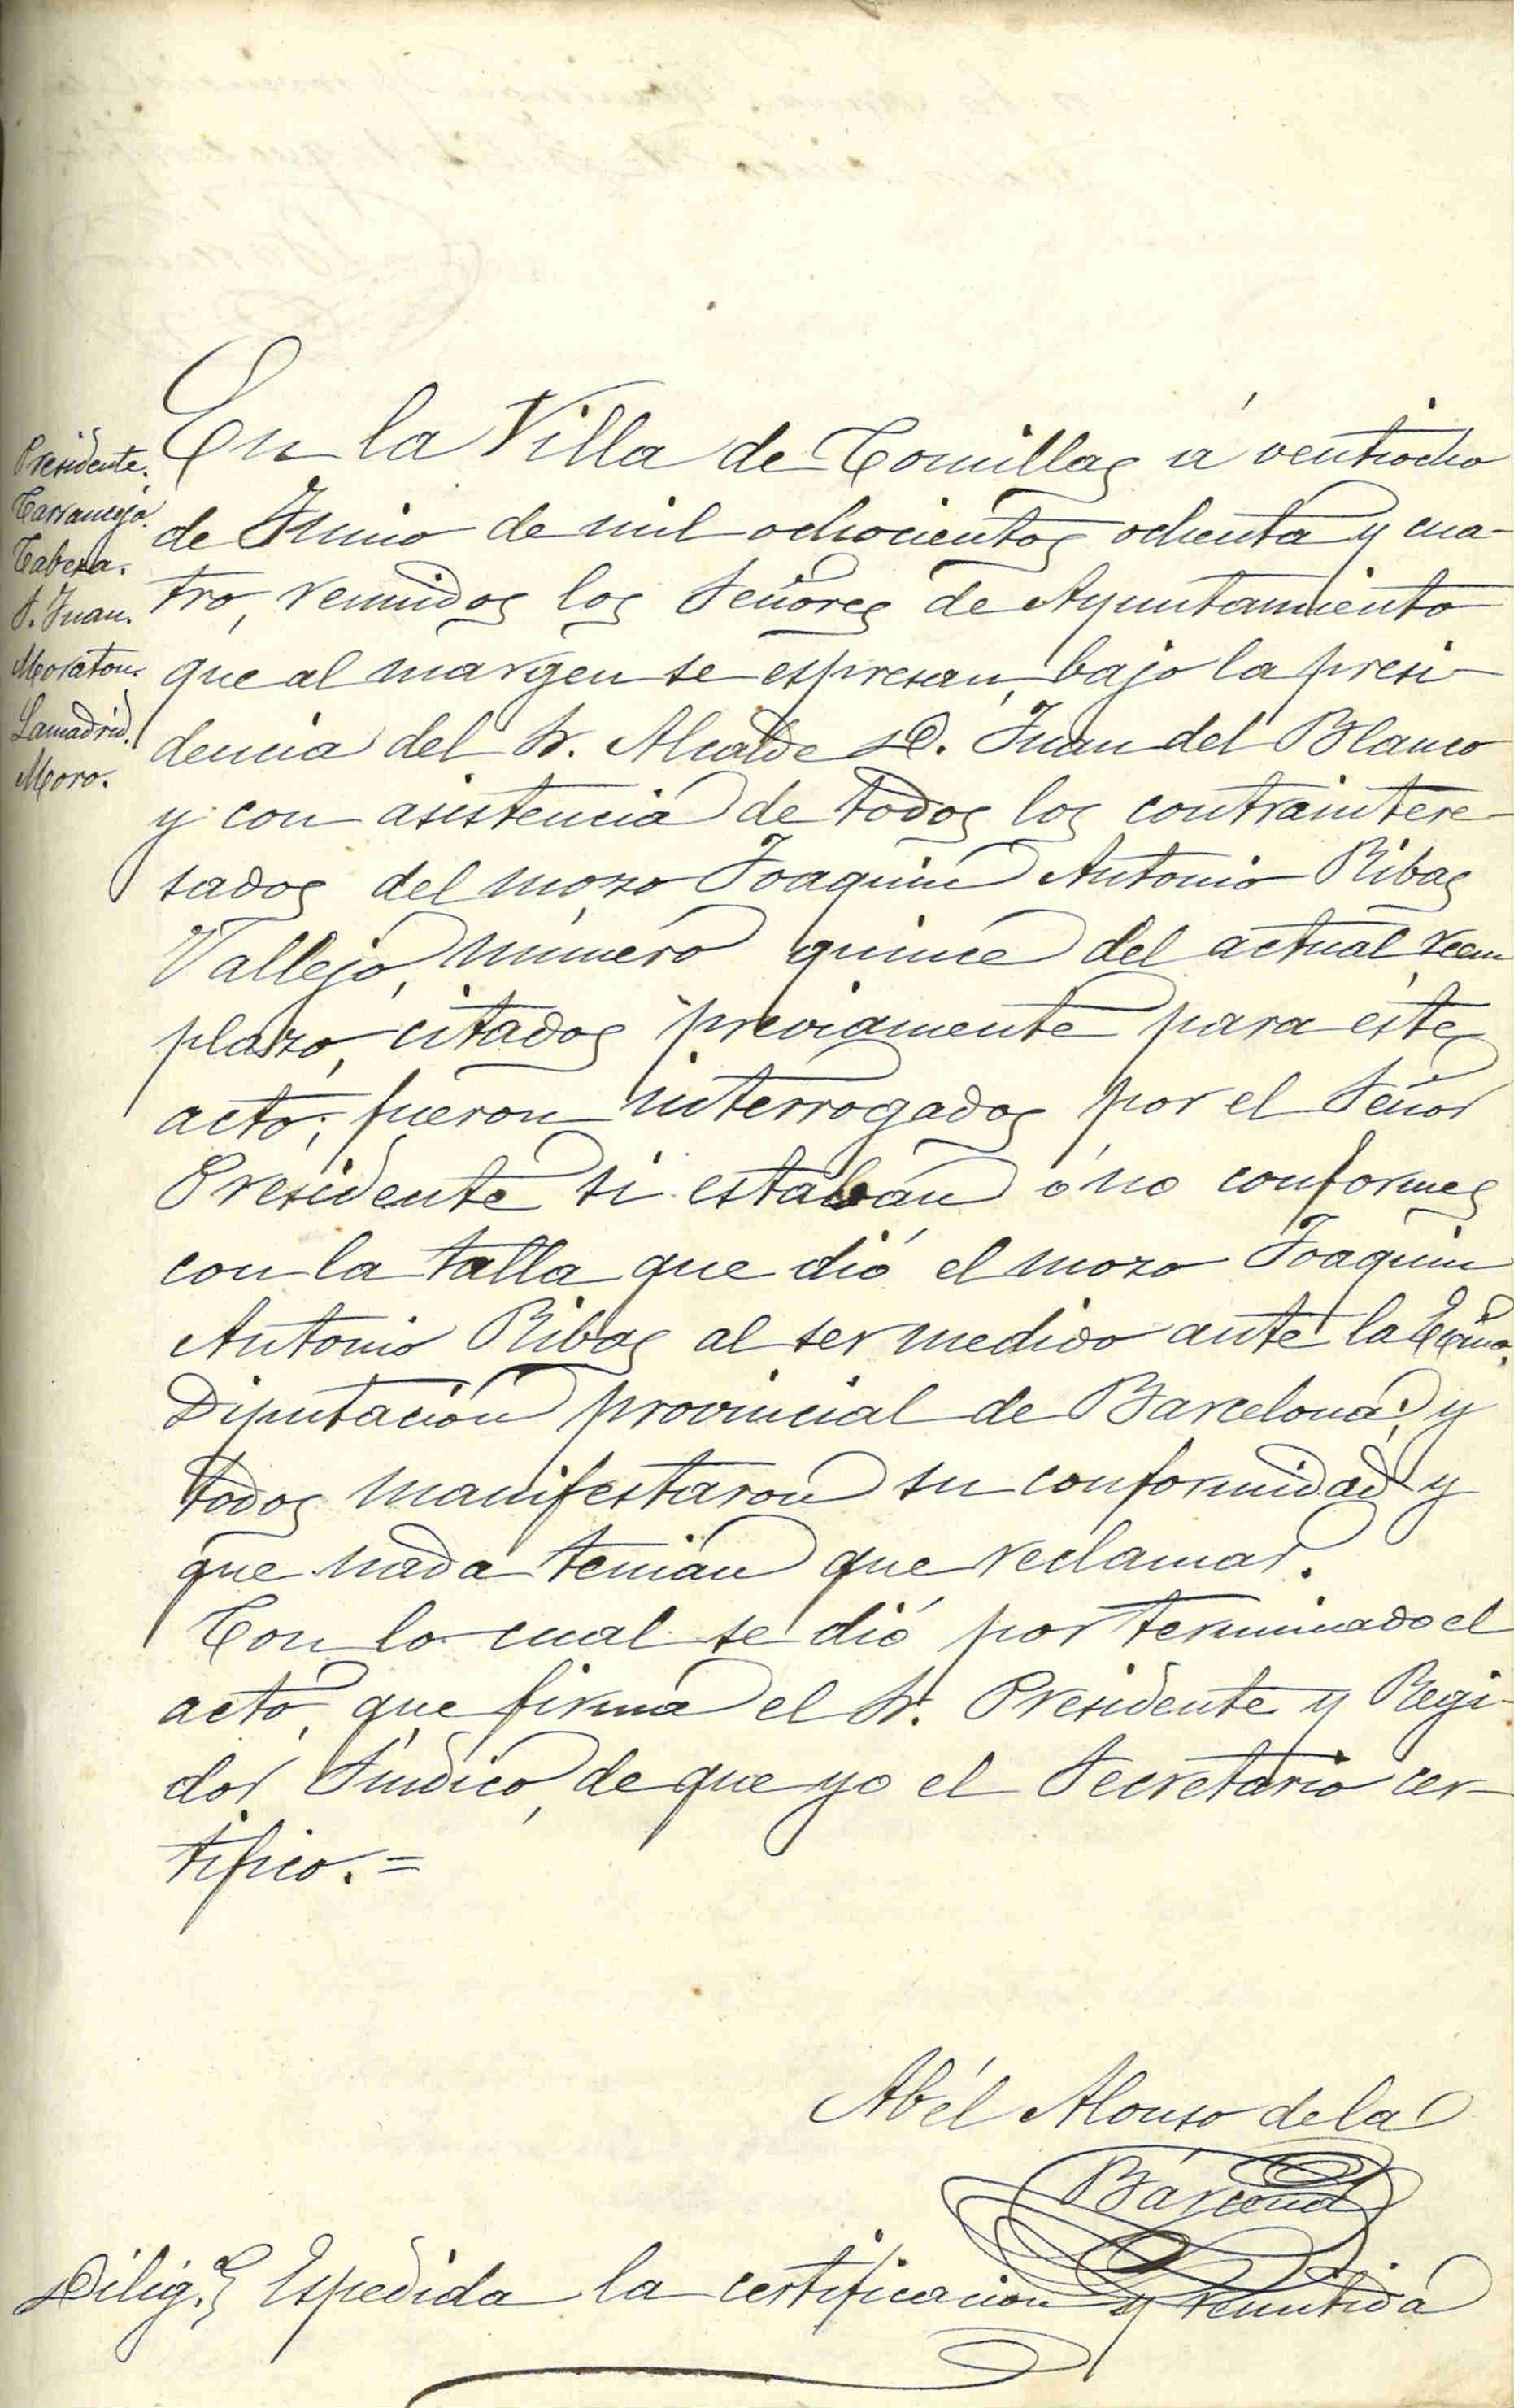 Presidente.
Carranceja.
Cabeza.
S. Juan.
Moraton.
Lamadrid.
Moro.
En la Villa de Comillas á ventiocho
de Junio de mil ochocientos ochenta y cua-
tro, reunidos los Señores de Ayuntamiento
que al margen se espresan, bajo la presi-
dencia del Sr. Alcalde D. Juan del Blanco
y con asistencia de todos los contraintere-
sados del mozo Joaquin Antonio Ribas
Vallejo, número quince del actual reem
plazo, citados previamente para éste
acto; fueron interrogados por el Señor
Presidente si estaban ó no conformes
con la talla que dió el mozo Joaquin
Antonio Ribas al ser medido ante la Excma.
Diputación provincial de Barcelona; y
todos manifestaron su conformidad y
que nada tenian que reclamar.
Con lo cual se dió por terminado el
acto, que firma el Sr. Presidente y Regi-
dor Síndico, de que yo el Secretario cer-
tifico. =
Abél Alonso de la
Bárcena
Dilig.ª Espedida la certificacion y remitida